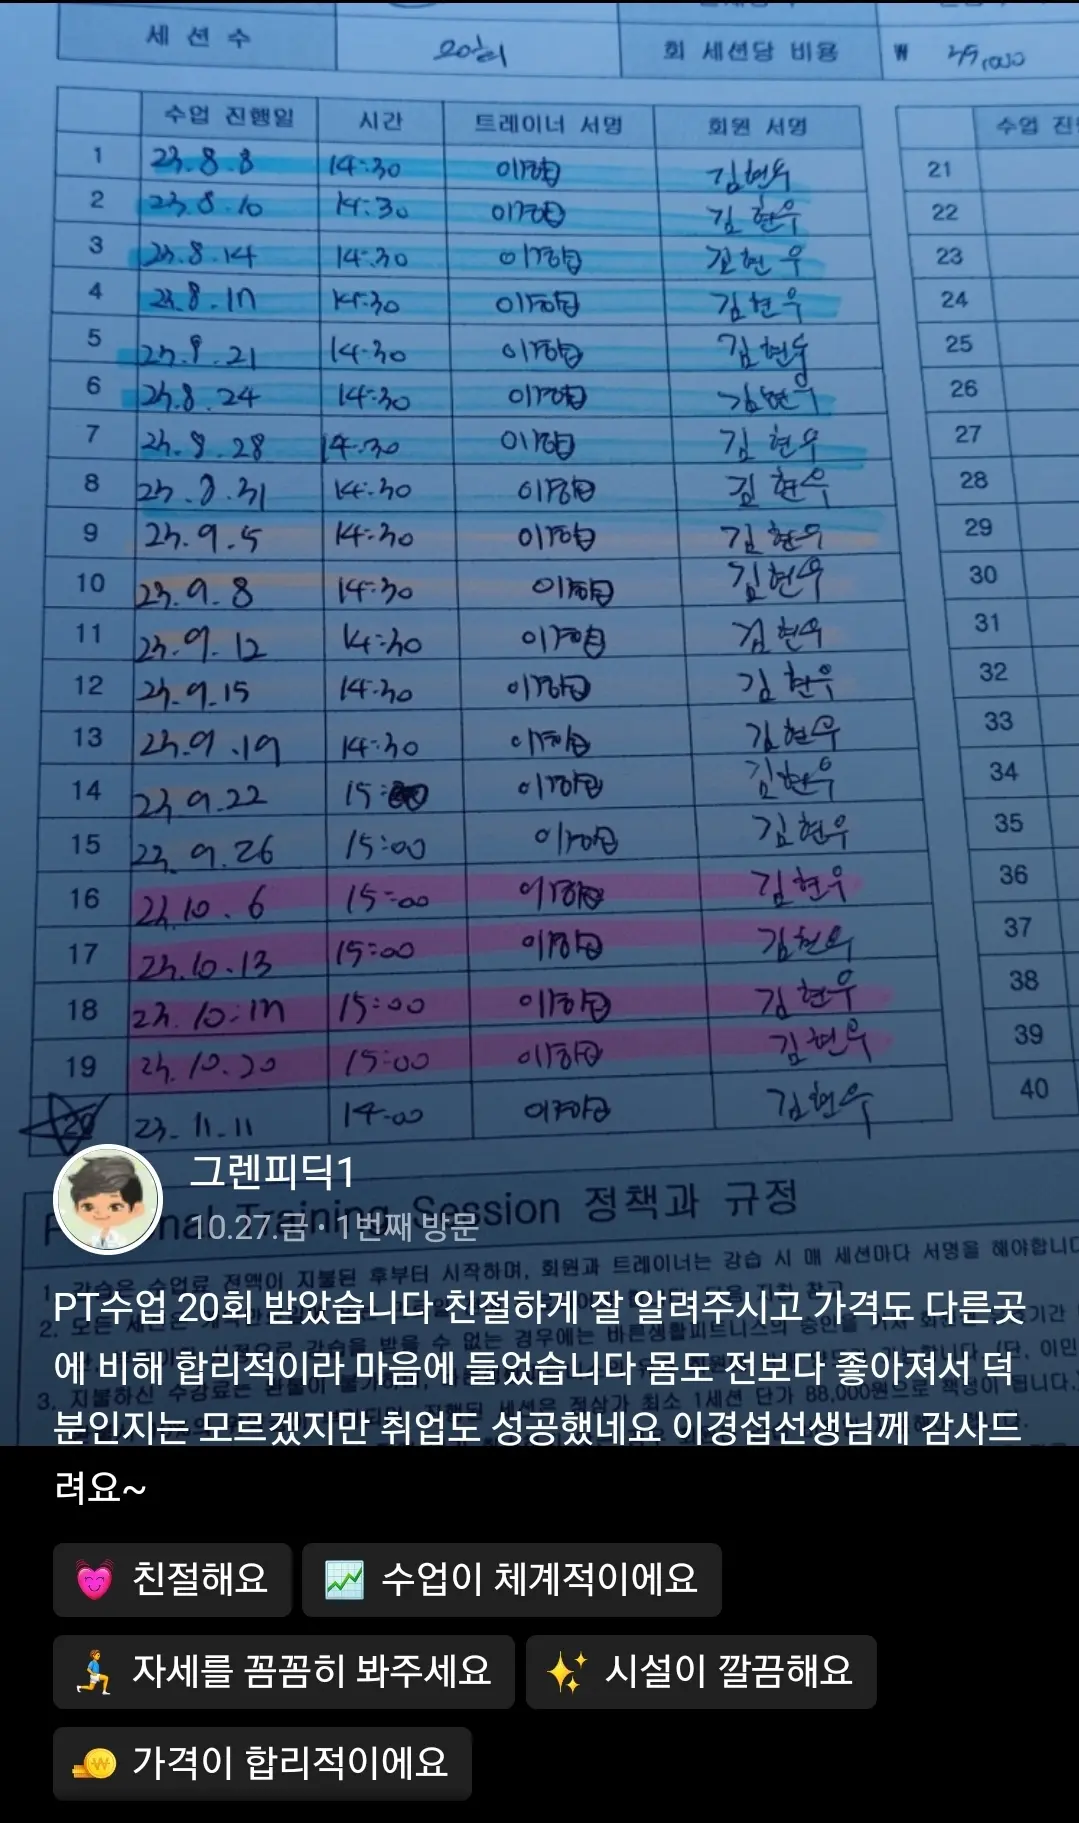 세 션 수 20회 회 세션당 비용 ₩
수업 진행일 시간 트레이너 서명 회원 서명 수업 진행
1 23.8.8 14:30 이경섭 김현우 21
2 23.8.10 14:30 이경섭 김현우 22
3 23.8.14 14:30 이경섭 김현우 23
4 23.8.17 14:30 이경섭 김현우 24
5 23.8.21 14:30 이경섭 김현우 25
6 23.8.24 14:30 이경섭 김현우 26
7 23.8.28 14:30 이경섭 김현우 27
8 23.8.31 14:30 이경섭 김현우 28
9 23.9.5 14:30 이경섭 김현우 29
10 23.9.8 14:30 이경섭 김현우 30
11 23.9.12 14:30 이경섭 김현우 31
12 23.9.15 14:30 이경섭 김현우 32
13 23.9.19 14:30 이경섭 김현우 33
14 23.9.22 15: 이경섭 김현우 34
15 23.9.26 15:00 이경섭 김현우 35
16 23.10.6 15:00 이경섭 김현우 36
17 23.10.13 15:00 이경섭 김현우 37
18 23.10.17 15:00 이경섭 김현우 38
19 23.10.20 15:00 이경섭 김현우 39
20 23.11.11 14:00 이경섭 김현우 40
그렌피딕1
Training Session 정책과 규정
10.27.금 · 1번째 방문
1. 강습은 수업료 전액이 지불된 후부터 시작하며, 회원과 트레이너는 강습 시 매 세션마다 서명을 해야합니다
PT수업 20회 받았습니다 친절하게 잘 알려주시고 가격도 다른곳
2. 모든 세션은
에 비해 합리적이라 마음에 들었습니다 몸도 전보다 좋아져서 덕
3. 지불하신 수강료는 최소 1세션 단가 88,000원으로 책정이 됩니다.
분인지는 모르겠지만 취업도 성공했네요 이경섭선생님께 감사드
려요~
친절해요 수업이 체계적이에요
자세를 꼼꼼히 봐주세요 시설이 깔끔해요
가격이 합리적이에요